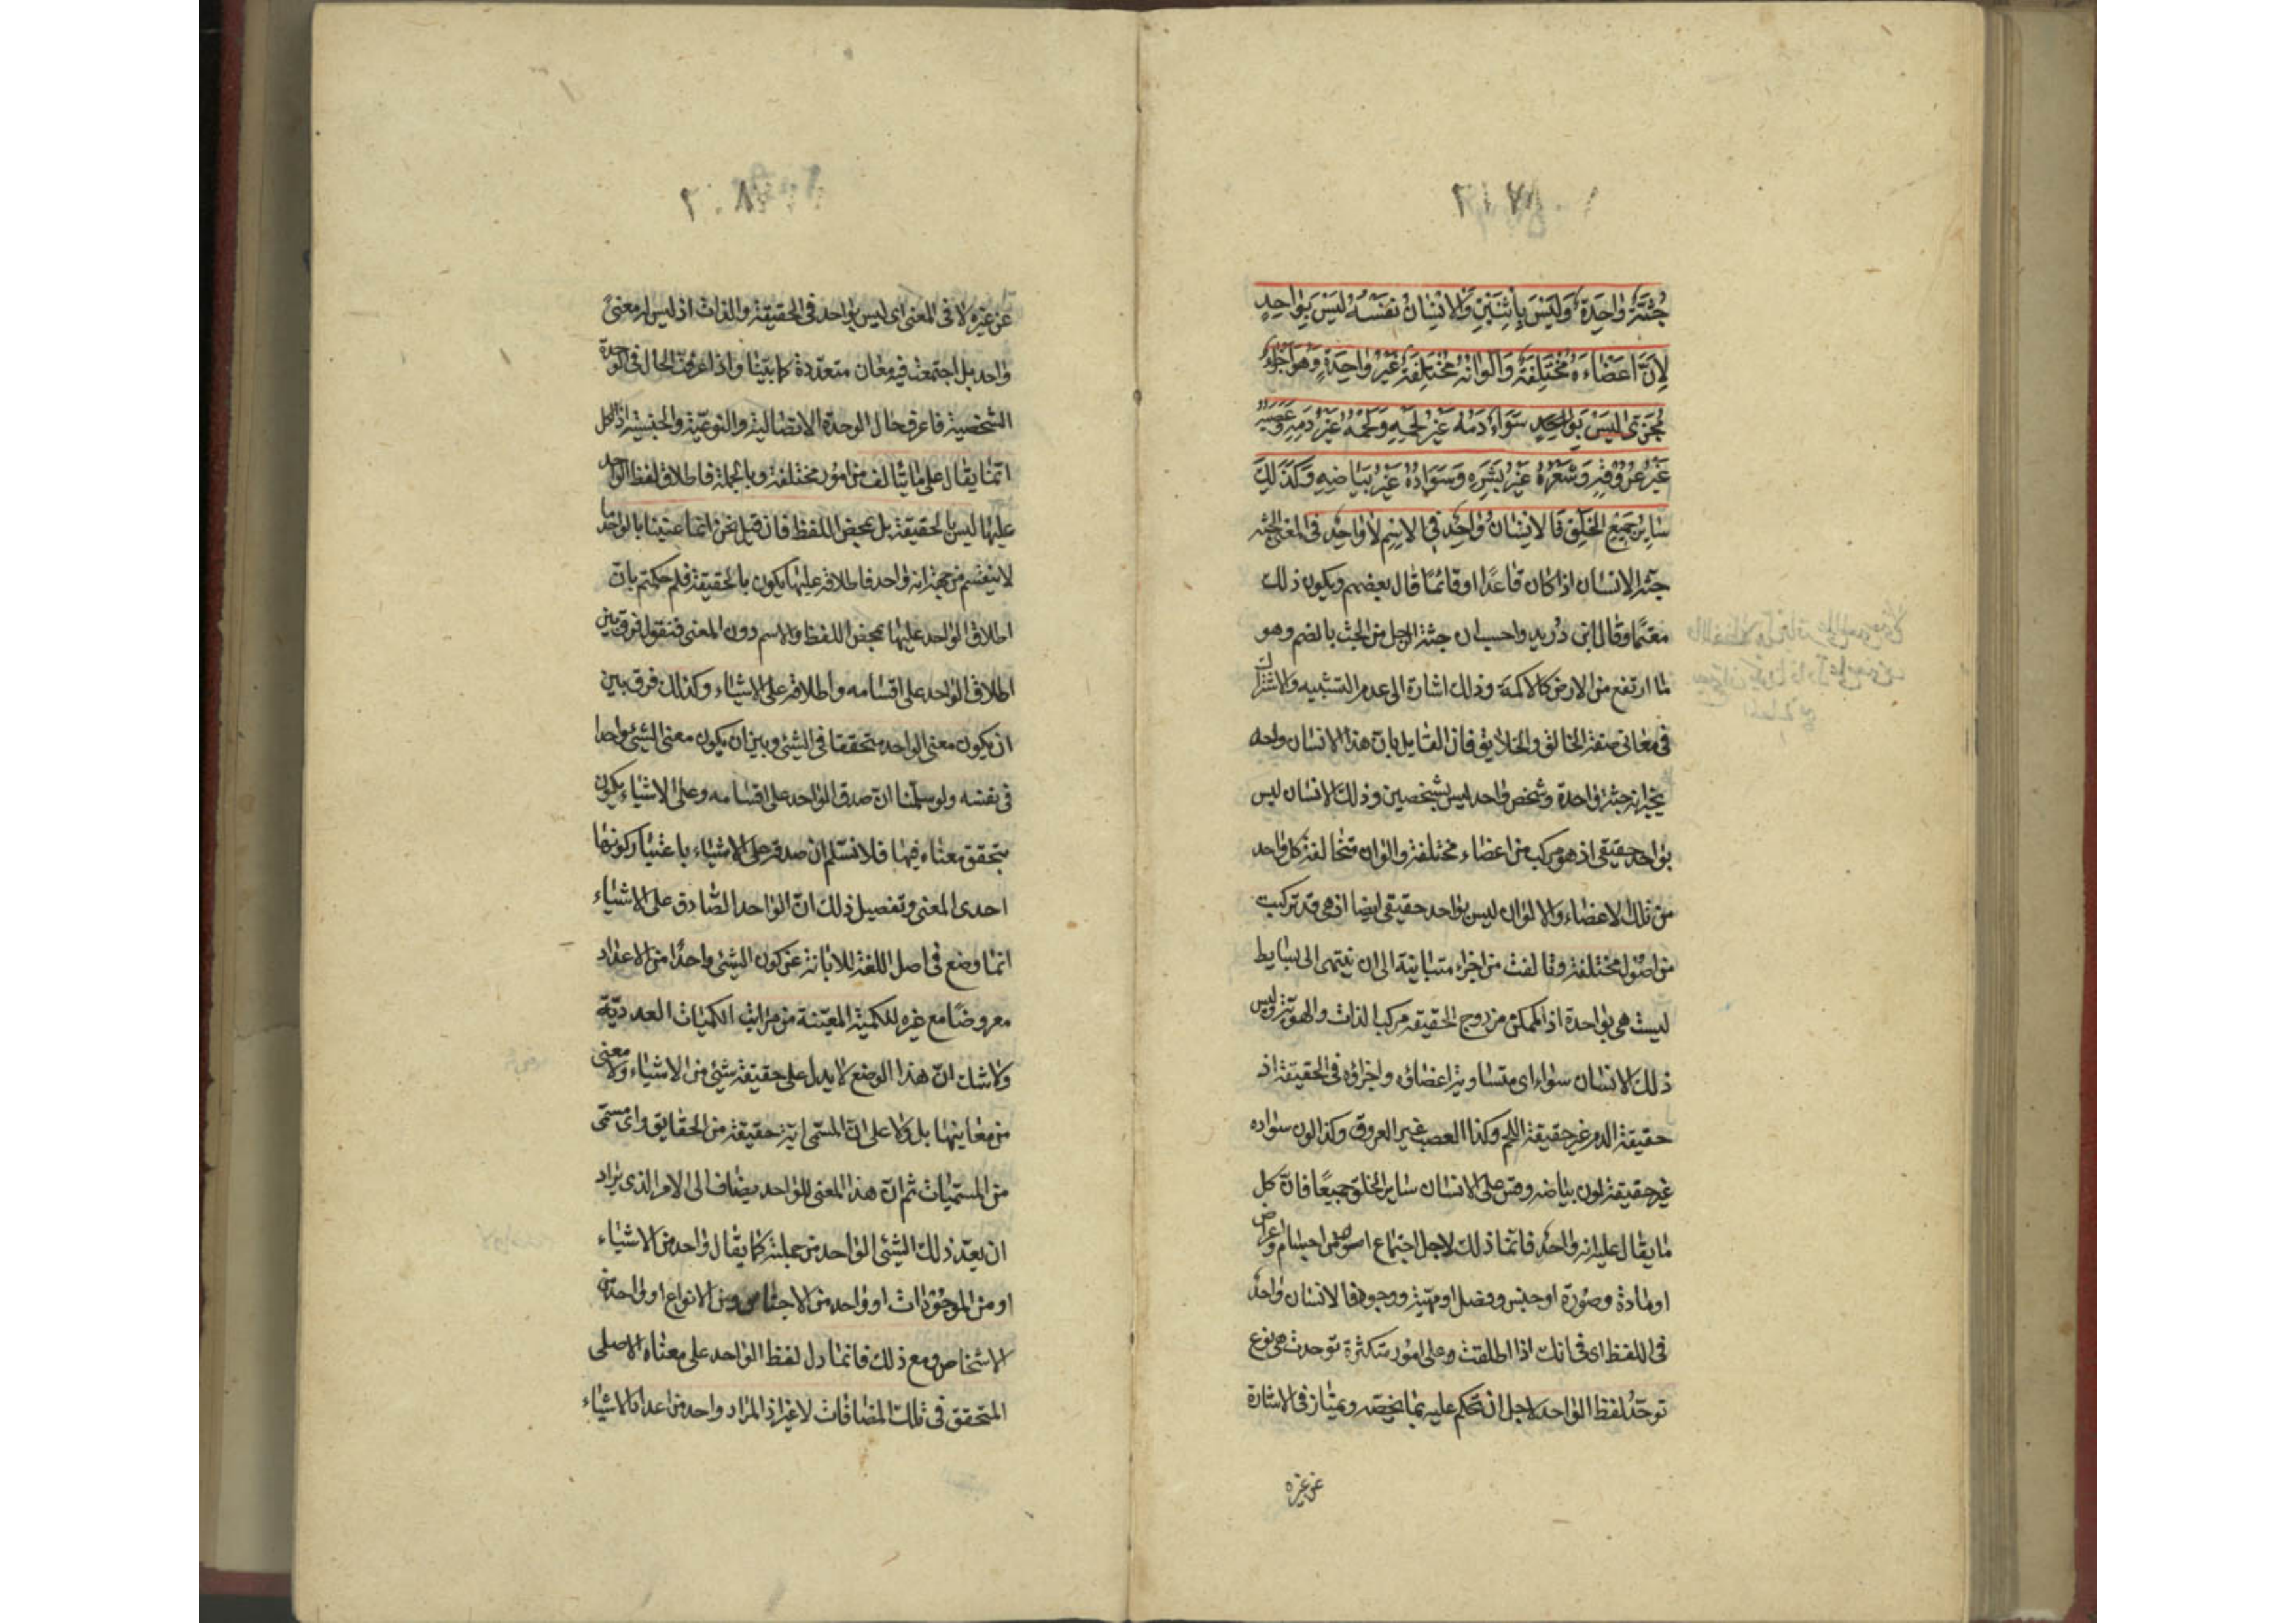 جُثَّةٌ وٰاحِدَةٌ وَلَيْسَ بِاثْنَيْنِ وَالْاِنْسٰانُ نَفْسُهُ لَيْسَ بِوٰاحِدٍ
لِاَنَّ اَعْضٰاءَهُ مُخْتَلِفَةٌ وَاَلْوٰانَهُ مُخْتَلِفَةٌ غَيْرُ وٰاحِدَةٍ وَهُوَ اَجْزٰاءٌ
مُجَزَّىٰ لَيْسَ سَوٰاءً دَمُهُ غَيْرُ لَحْمِهِ وَلَحْمُهُ غَيْرُ دَمِهِ وَعَصَبُهُ
غَيْرُ عُرُوقِهِ وَشَعْرُهُ غَيْرُ بَشَرِهِ وَسَوٰادُهُ غَيْرُ بَيٰاضِهِ وَكَذٰلِكَ
سٰايِرُ جَمِيْعِ الْخَلْقِ فَالْاِنْسٰانُ وٰاحِدٌ فِي الْاِسْمِ لٰا وٰاحِدٌ فِي الْمَعْنٰى الجثة
جثة الانسان اذا كان قاعدًا او قائمًا قال بعضهم ويكون ذلك
معتمًا وقال ابن دريد واحسب ان جثة الرجل من الجث بالضم وهو
ما ارتفع من الارض كالاكمة وذلك اشارة الى عدم التشبيه والاشتراك
فى معانى صفة الخالق والخلايق فان القايل بان هذا الانسان واحد
يخبر انه جثة واحدة وشخص واحد ليس بشخصين وذلك الانسان ليس
بواحد حقيقى اذ هو مركب من اعضاء مختلفة والوان متخالفة كل واحد
من تلك الاعضاء والالوان ليس بواحد حقيقى ايضا اذ هى قد تركبت
من اصول مختلفة وتالفت من اجزاء متباينة الى ان تنتهى الى بسايط
ليست هى بواحدة اذ الممكن مزدوج الحقيقة مركب الذات والهوية وليس
ذلك الانسان سواء اى متساوية اعضاؤه واجزاؤه فى الحقيقة اذ
حقيقة الدم غير حقيقة اللحم وكذا العصب غير العروق وكذا لون سواده
غير حقيقة لون بياضه وقس على الانسان ساير الخلق جميعًا فان كل
ما يقال عليه انه واحد فانما ذلك لاجل اجتماع امور من اجسام واعراض
او مادة وصورة او جنس وفصل او مهية ووجود فالانسان واحد
فى اللفظ اى فى انك اذا اطلقت على امور متكثرة توحدت هى نوع
توحد لفظ الواحد لاجل ان تحكم عليه بما يخصه ويمتاز فى الاشارة
عن غيره
عن غيره لا فى المعنى اى ليس بواحد فى الحقيقة والذات اذ ليس له معنى
واحد بل اجتمعت فيه معان متعددة كما بيّنا واذا عرفت الحال فى الوحدة
الشخصية فاعرف حال الوحدة الاتصالية والنوعية والجنسية اذ الكل
انما يقال على ما يتالف من امور مختلفة وبالجملة فاطلاق لفظ الواحد
عليها ليس بالحقيقة بل بمحض اللفظ فان قيل نحن انما عنينا بالواحد ما
لا ينقسم من جهة انه واحد فاطلاقه عليها يكون بالحقيقة فلم حكمتم بان
اطلاق الواحد عليها بمحض اللفظ والاسم دون المعنى فنقول فرق بين
اطلاق الواحد على اقسامه واطلاقه على الاشياء وكذلك فرق بين
ان يكون معنى الواحد متحققا فى الشئ وبين ان يكون معنى الشئ واحدا
فى نفسه ولو سلّمنا انّ صدق الواحد على اقسامه وعلى الاشياء يكون
بتحقق معناه فيها فلا نسلم ان صدقه على الاشياء باعتبار كونها
احدى المعنى وتفصيل ذلك انّ الواحد الصّادق على الاشياء
انما وضع فى اصل اللغة للابانة عن كون الشئ واحدًا من الاعداد
معروضًا مع غيره للكمية المعيّنة من مراتب الكميات العدديّة
ولا شك انّ هذا الوضع لا يدل على حقيقة شئ من الاشياء ولا معنى
من معانيها بل ولا على انّ المسمى اية حقيقة من الحقايق واى مسمّى
من المسمّيات ثم انّ هذا المعنى للواحد يضاف الى الامر الذى يراد
ان يعدّ ذلك الشئ الواحد من جملته كما يقال واحد من الاشياء
او من الموجودات او واحد من الاجناس ومن الانواع او واحد من
الاشخاص ومع ذلك فانما دل لفظ الواحد على معناه الاصلى
المتحقق فى تلك المضافات لا غير اذ المراد واحد من اعداد الاشياء